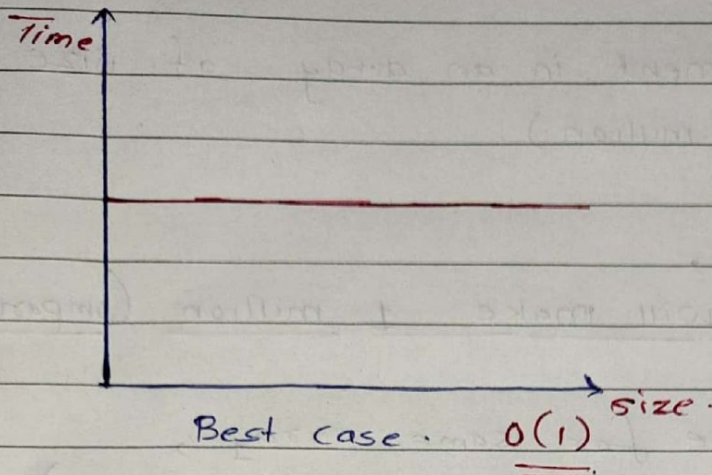 Time
size.
Best case. O(1)